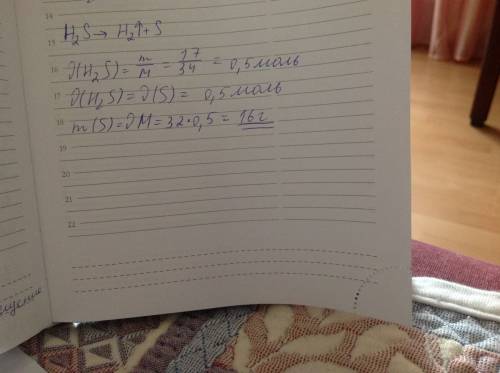 14
15 H₂S → H₂↑ + S
16 ν(H₂S) = m/M = 17/34 = 0,5 моль
17 ν(H₂S) = ν(S) = 0,5 моль
18 m(S) = νM = 32·0,5 = 16г
19
20
21
22